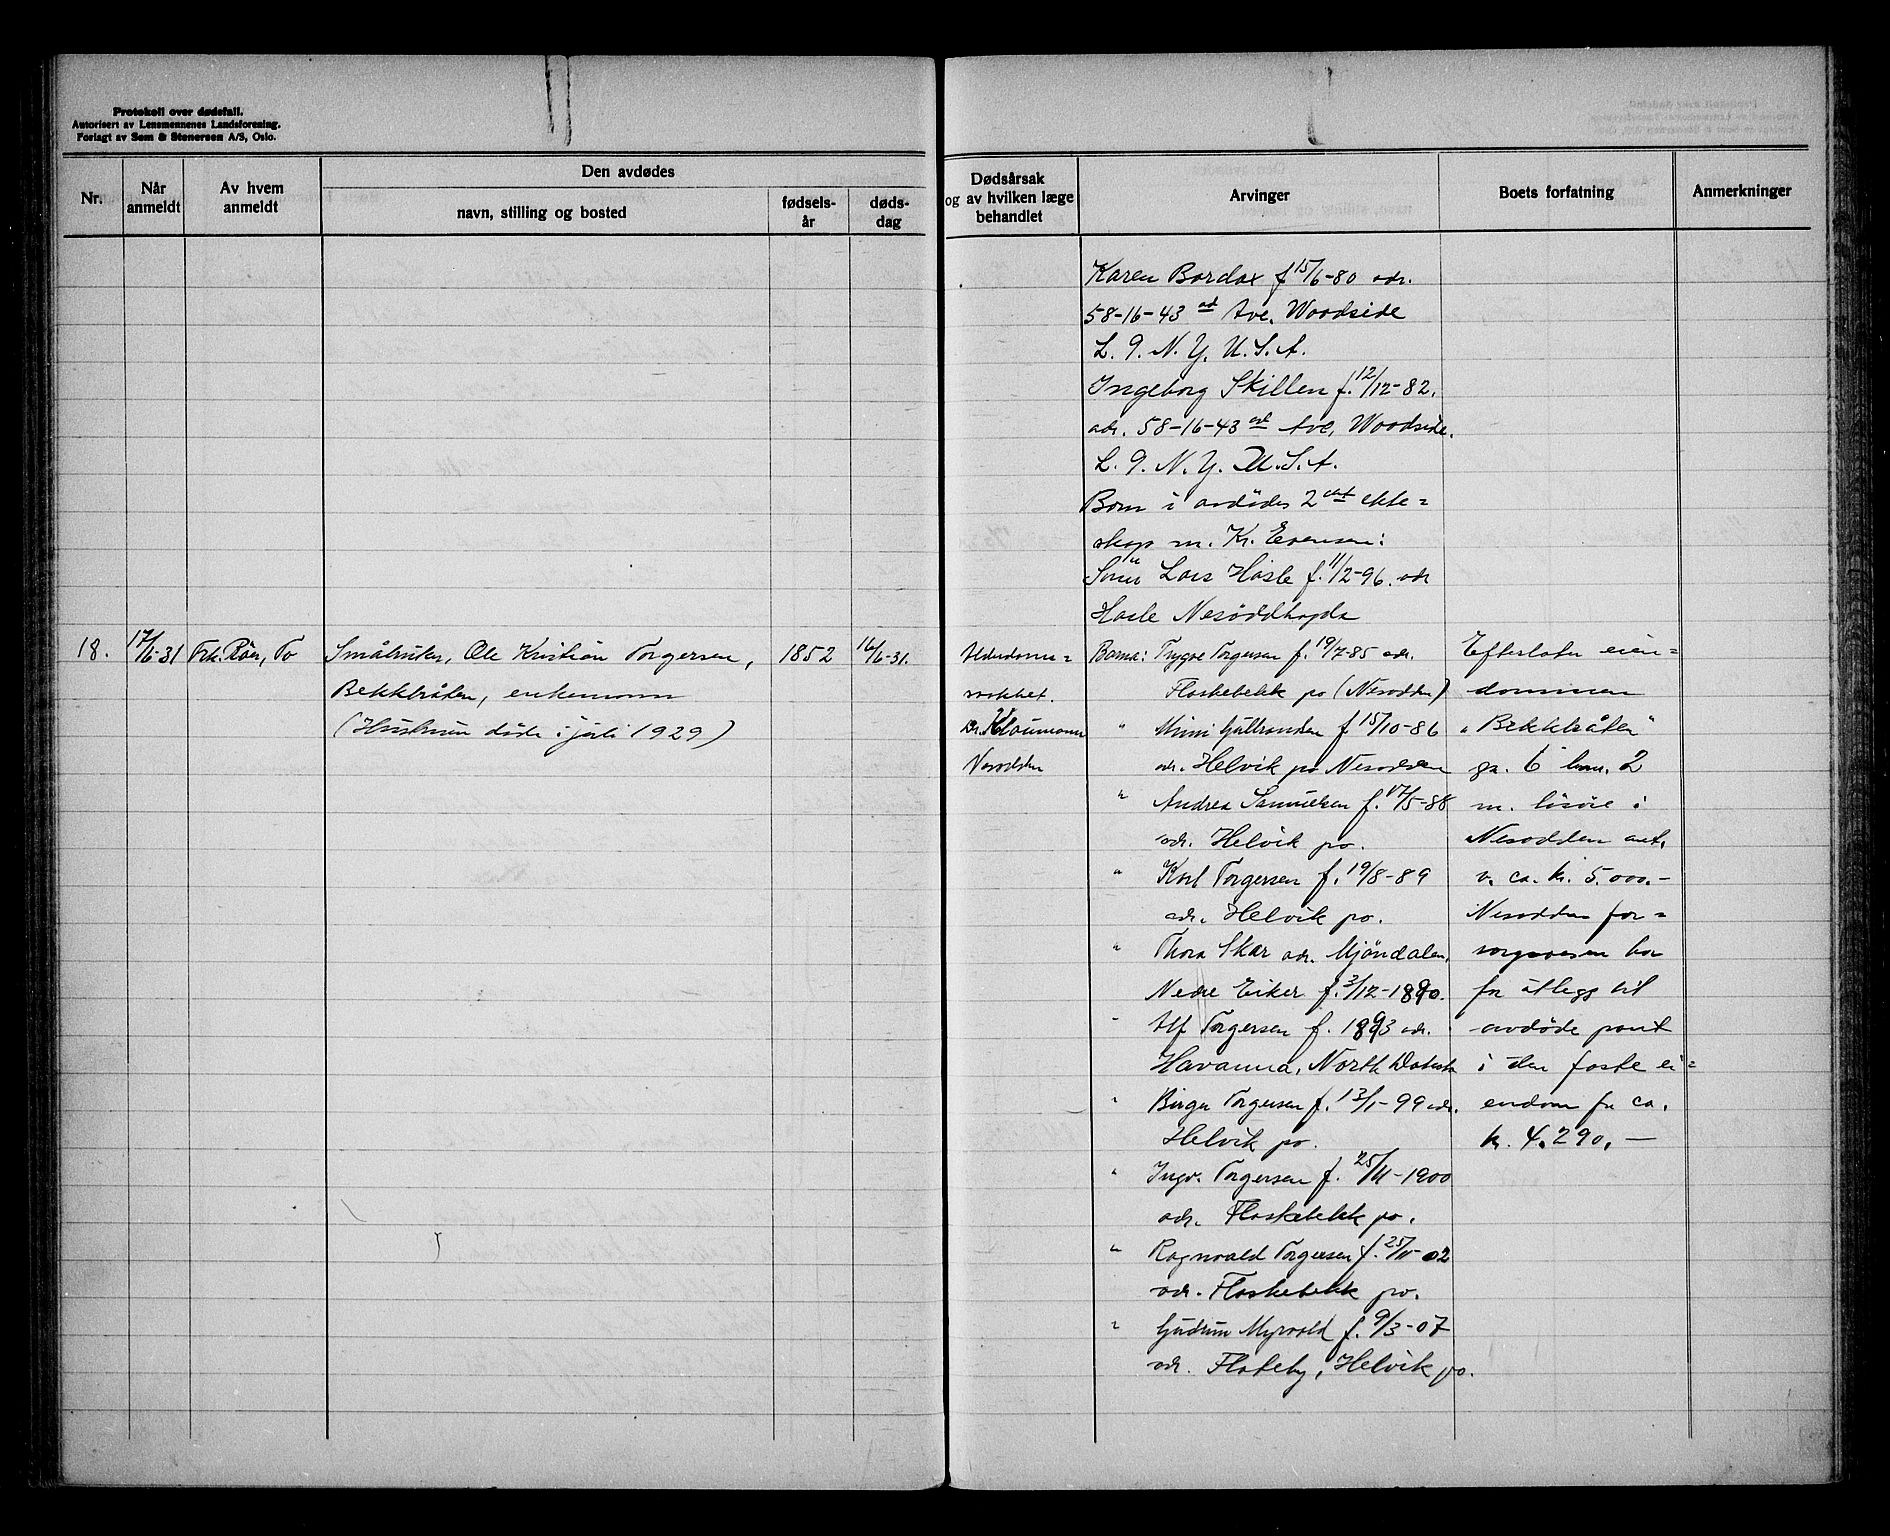 Protokoll over dødsfall.
Autorisert av Lensmennenes Landsforening.
Forlagt av Sem & Stenersen A/S, Oslo.
Nr.
Når anmeldt
Av hvem anmeldt
Den avdødes
navn, stilling og bosted
fødsels-år
døds-dag
Dødsårsak og av hvilken læge behandlet
Arvinger
Boets forfatning
Anmerkninger
Karen Bordax f 15/6-80 adr.
58-16-43 ad Ave. Woodside
L. I. N. Y. U.S.A.
Ingeborg Skillen f. 12/12-82.
adr. 58-16-43 ad Ave, Woodside.
L. I. N. Y. U.S.A.
Barn i avdødes 2 det ekte=
skap m. Kr. Evensen:
Lars Hasle f. 11/2-96. adr
Hasle Nesoddhogda
18.
17/6-31
Frk. Röer, To
Småbruker, Ole Kristian Torgersen,
Bekkbråten, enkemann
(Hustruen døde i juli 1929)
1852
16/6-31.
Alderdoms=
svakhet.
Dr. Klaumann
Nesodden
Barna: Trygve Torgersen f. 19/7-85 adr.
Flaskebekk po (Nesodden)
" Mimi Gulbranden f 15/10-86
adr. Helvik po Nesodden
" Andrea Samuelsen f. 17/5-88
adr. Helvik po.
" Karl Torgersen f. 19/8-89
adr. Helvik po.
" Thora Skar adr. Mjöndalen,
Nedre Eiker f. 3/12-1890.
" Alf Torgersen f. 1893 adr.
Havanna, North Dakota
" Birger Torgersen f. 13/1-99 adr.
Helvik po.
" Ingv. Torgersen f. 25/11-1900
adr. Flaskebekk po.
" Ragnvald Torgersen f. 25/11-02
adr. Flaskebekk po.
" Gudrun Myrvold f. 9/3-07
adr. Flateby, Helvik po.
Efterlater eien=
dommen
"Bekkbråten"
gn. 6 bnr. 2
m. løsøre i
Nesodden ant.
v. ca. kr. 5.000.-
Nesodden for=
sorgsvesen har
for utlegg til
avdøde pant
i den faste ei=
endom for ca.
kr. 4.290.—